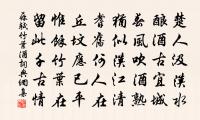 楚人汲漢水
釀酒古宜城
春風吹酒熟
猶似漢江清
耆舊何人在
丘墳應已平
惟餘竹葉在
留此千古情
蘇軾竹葉酒詞典網集